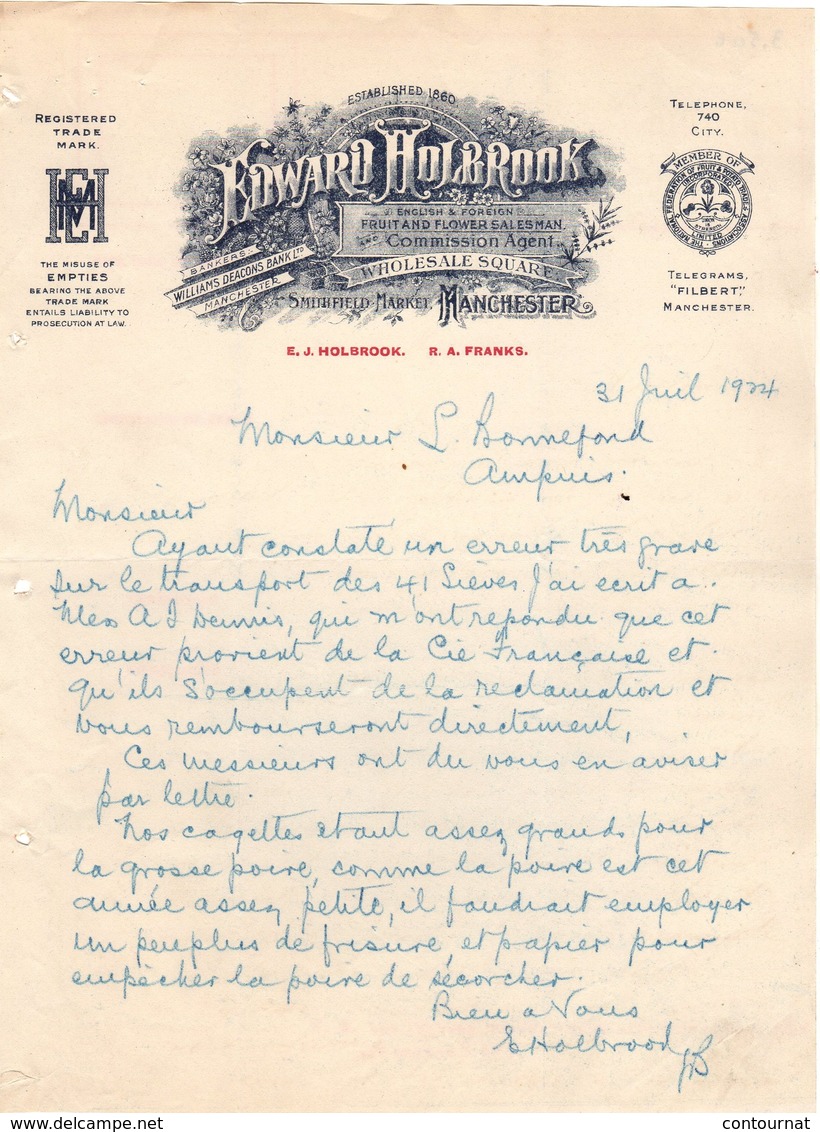 ESTABLISHED 1860
REGISTERED
TRADE
MARK.
THE MISUSE OF
EMPTIES
BEARING THE ABOVE
TRADE MARK
ENTAILS LIABILITY TO
PROSECUTION AT LAW.
EDWARD HOLBROOK,
ENGLISH & FOREIGN
FRUIT AND FLOWER SALESMAN
AND Commission Agent
WHOLESALE SQUARE
BANKERS:
WILLIAMS DEACONS BANK LTD
MANCHESTER
SMITHFIELD MARKET, MANCHESTER
TELEPHONE,
740
CITY.
MEMBER OF
THE NATIONAL FEDERATION OF FRUIT & POTATO TRADES ASSOCIATIONS
INCORPORATED
LIMITED
TELEGRAMS,
"FILBERT,"
MANCHESTER.
E. J. HOLBROOK. R. A. FRANKS.
31 Juil 1924
Monsieur L. Bonnefond
Ampuis.
Monsieur
Ayant constaté un erreur très grave
sur le transport des 41 Sièves J'ai ecrit a
Mess A J Dennis, qui m'ont repondu que cet
erreur provient de la Cie Française et
qu'ils s'occupent de la reclamation et
vous rembourseront directement,
Ces messieurs ont du vous en aviser
par lettre.
Nos cagettes etant assez grands pour
la grosse poire, comme la poire est cet
année assez petite, il faudrait employer
un peu plus de frisure, et papier pour
empêcher la poire de s'écorcher.
Bien a Vous
E Holbrook
www.delcampe.net
contournat